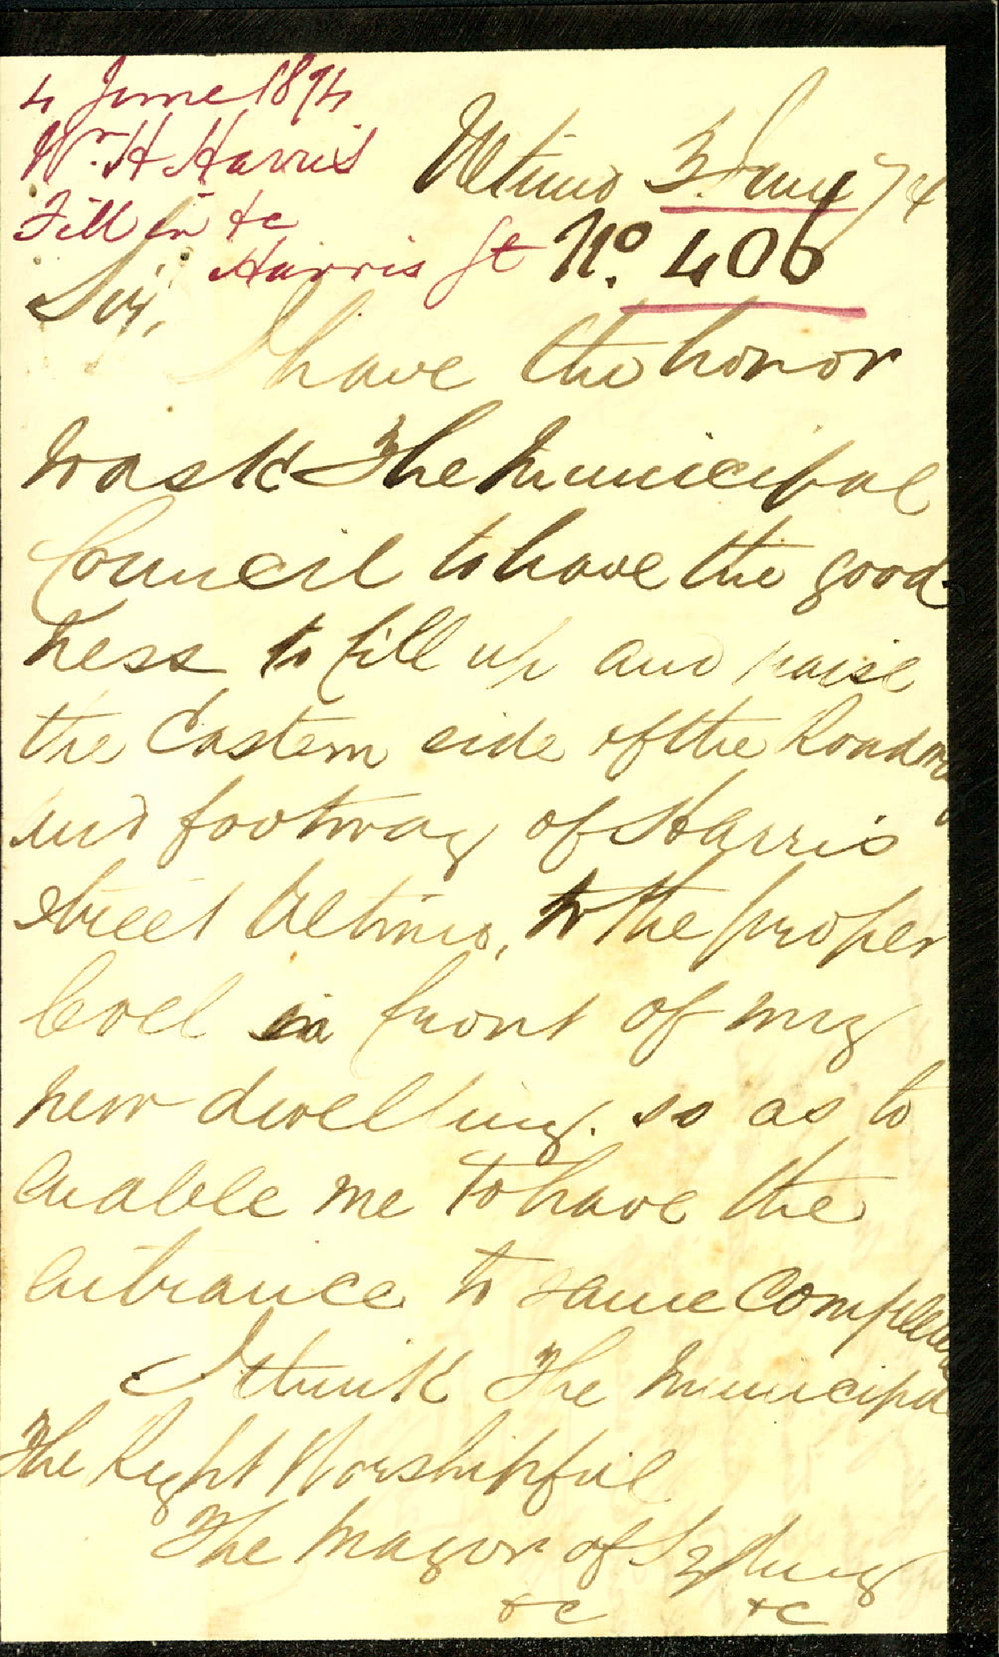 4 June 1874
Wm. H Harris
Fill in &c
Harris St
Ultimo 3 June 74
No. 406
Sir,
I have the honor
to ask The Municipal
Council to have the good-
ness to fill up and raise
the Eastern side of the Roadway
and footway of Harris
street Ultimo, to the proper
level in front of my
new dwelling. so as to
enable me to have the
entrance to same completed
I think The Municipal
The Right Worshipful
The Mayor of Sydney
&c &c